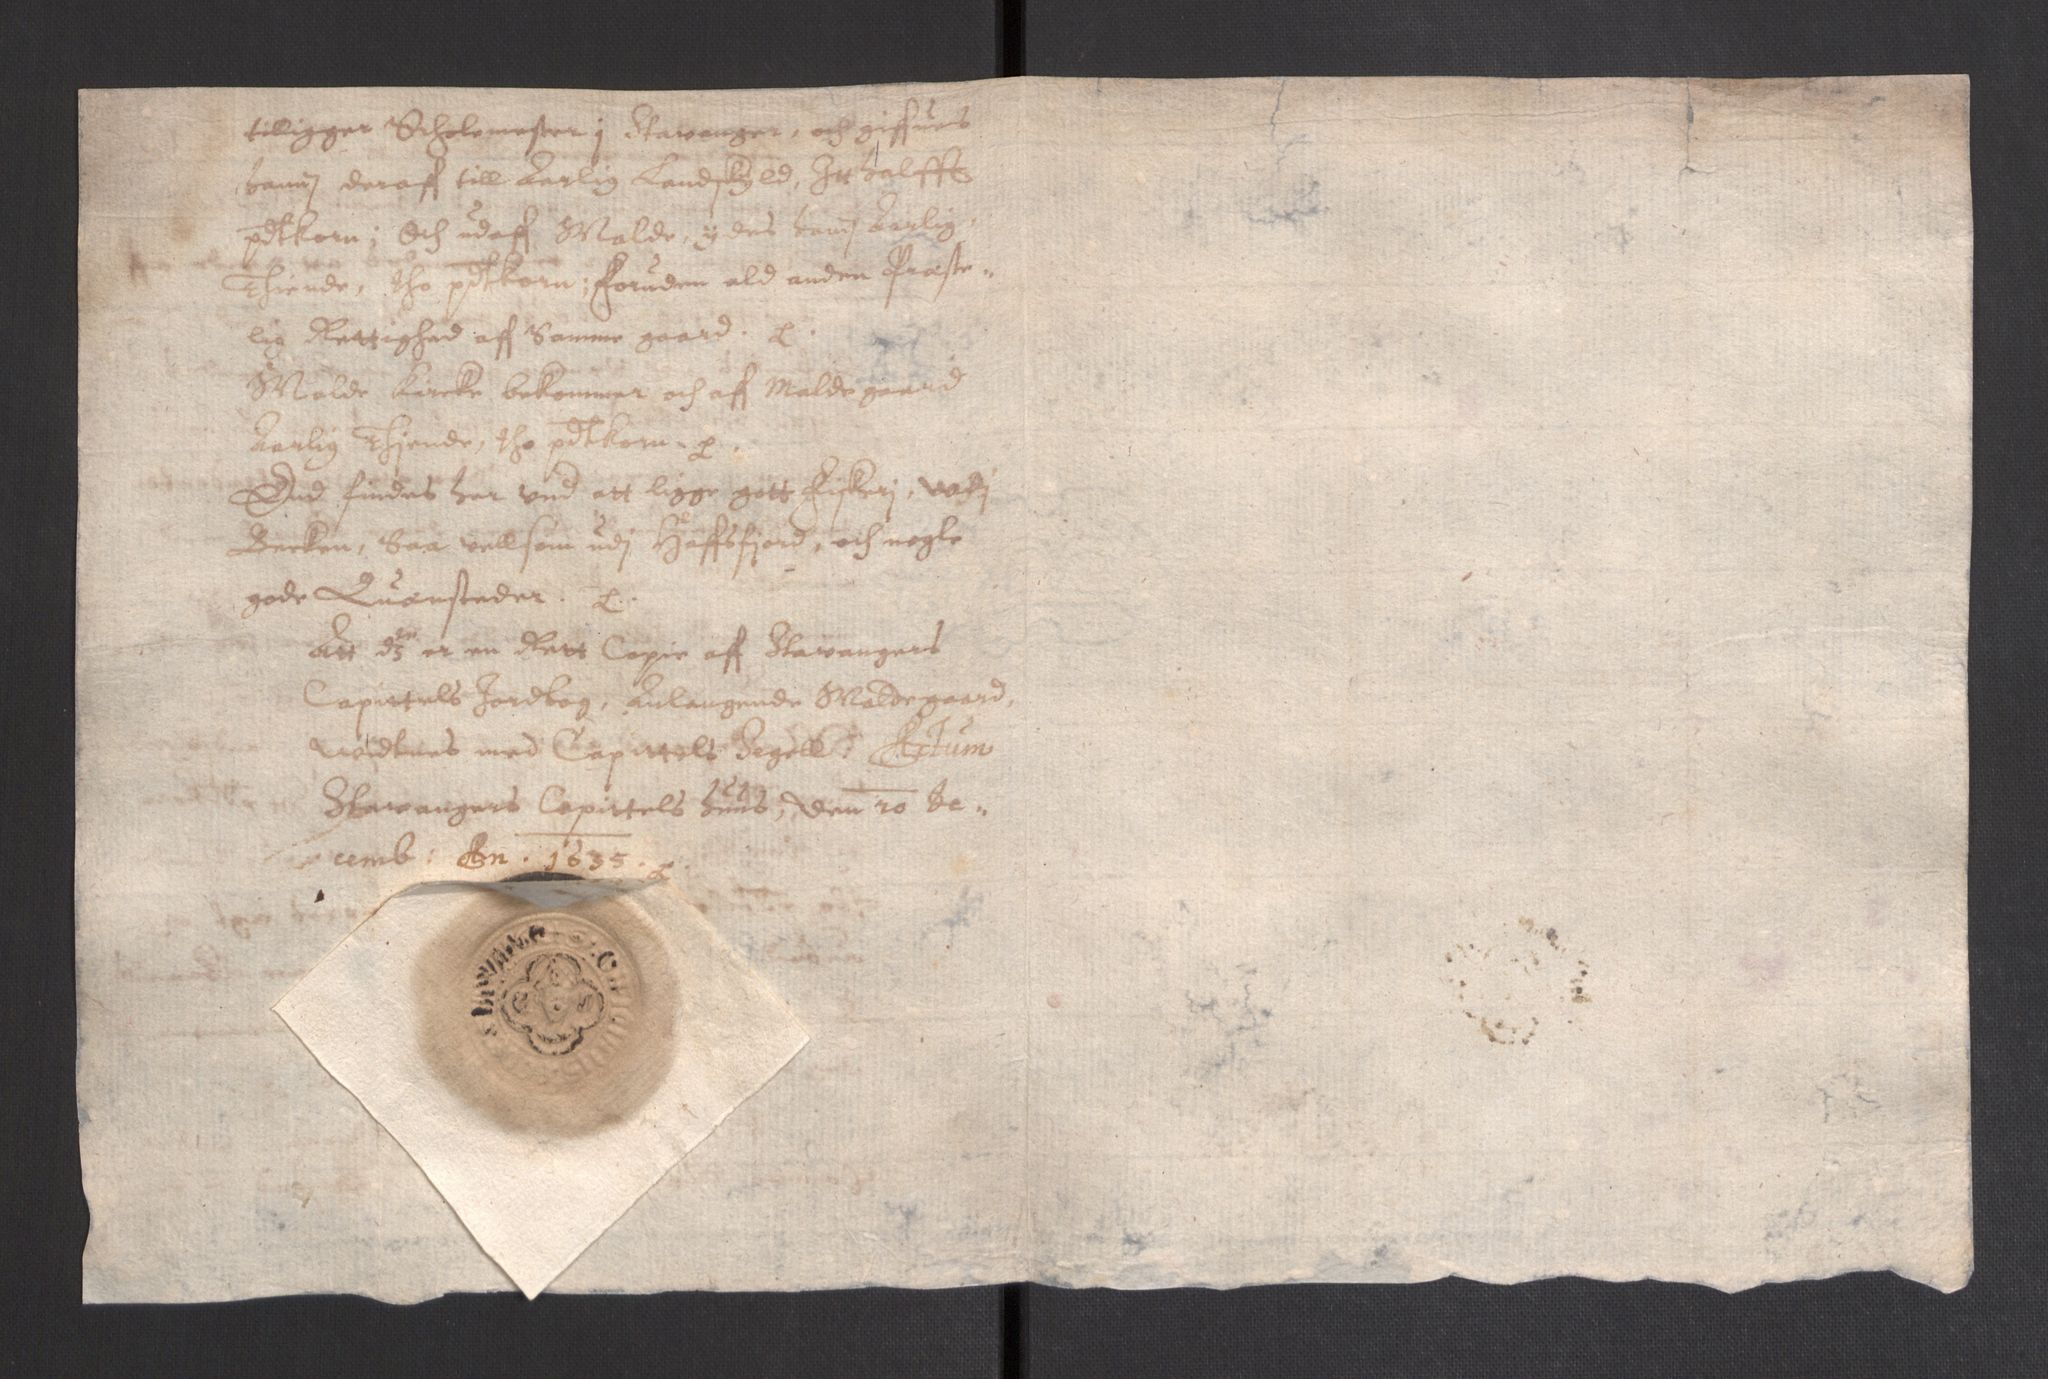 tilligger Scholemester j Stavanger, och giffues
hannj deraff till Aarlig Landskyld, Itt halfft
pdtkorn; Och udaff Malde, ydes hannj Aarlig
Thiende, tho pdtkorn; foruden ald anden Præste-
lig Rettighed aff Samme gaard.
Malde Kircke bekommer och aff Malde gaard
Aarlig Thjende, tho pdtkorn.
End findes her ved att ligge gott fiskerj, vdj
Becken, Saa vellsom udj Haffsfjord, och nogle
gode Quernsteder.
Att dz er en Rett Copie aff Stavangers
Capittels Jordbog, Anlangende Malde gaard,
vidnes med Capittels Zegell. Actum
Stavangers Capittels huus, den 10 de-
cemb: An. 1635.